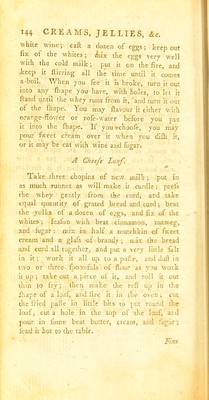 144 CREAMS, JELLIES, &c.
white wine; cast a dozen of eggs; keep out
six of the whites; mix the eggs very well
with the cold milk; put it on the fire, and
keep it stirring all the time until it comes
a-boil. When you see it is broke, turn it out
into any shape you have, with holes, to let it
stand until the whey runs from it, and turn it out
of the shape. You may flavour it either with
orange-flower or rose-water before you put
it into the shape. If you choose, you may
pour sweet cream over it when you dish it,
or it may be eat with wine and sugar.
A Cheese Loaf.
Take three chopins of new milk; put in
as much runnet as will make it curdle; press
the whey gently from the curd, and take
equal quantity of grated bread and curd; beat
the yolks of a dozen of eggs, and six of the
whites; season with beat cinnamon, nutmeg,
and sugar: mix in half a mutchkin of sweet
cream and a glass of brandy; mix the bread
and curd all together, and put a very little salt
in it; work it all up to a paste, and dust in
two or three spoonfuls of flour as you work
it up; take out a piece of it, and roll it out
thin to fry; then make the rest up in the
shape of a loaf, and fire it in the oven; cut
the fried paste in little bits to put round the
loaf, cut a hole in the top of the loaf, and
pour in some beat butter, cream, and sugar;
send it hot to the table.